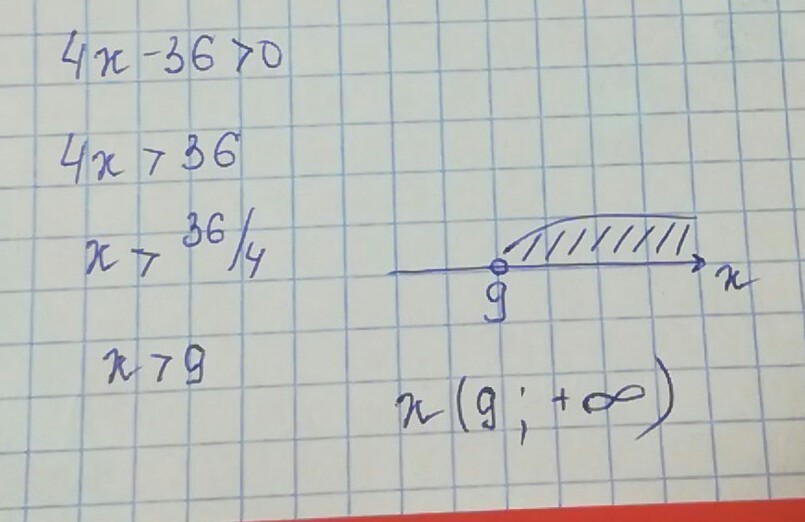 4x - 36 > 0
4x > 36
x > 36/4
x > 9
9
x
x (9; +∞)